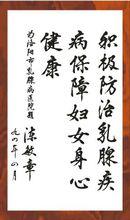 积极防治乳腺疾
病保障妇女身心
健康
为洛阳市乳腺病医院题
陈敏章
九〇年〇月